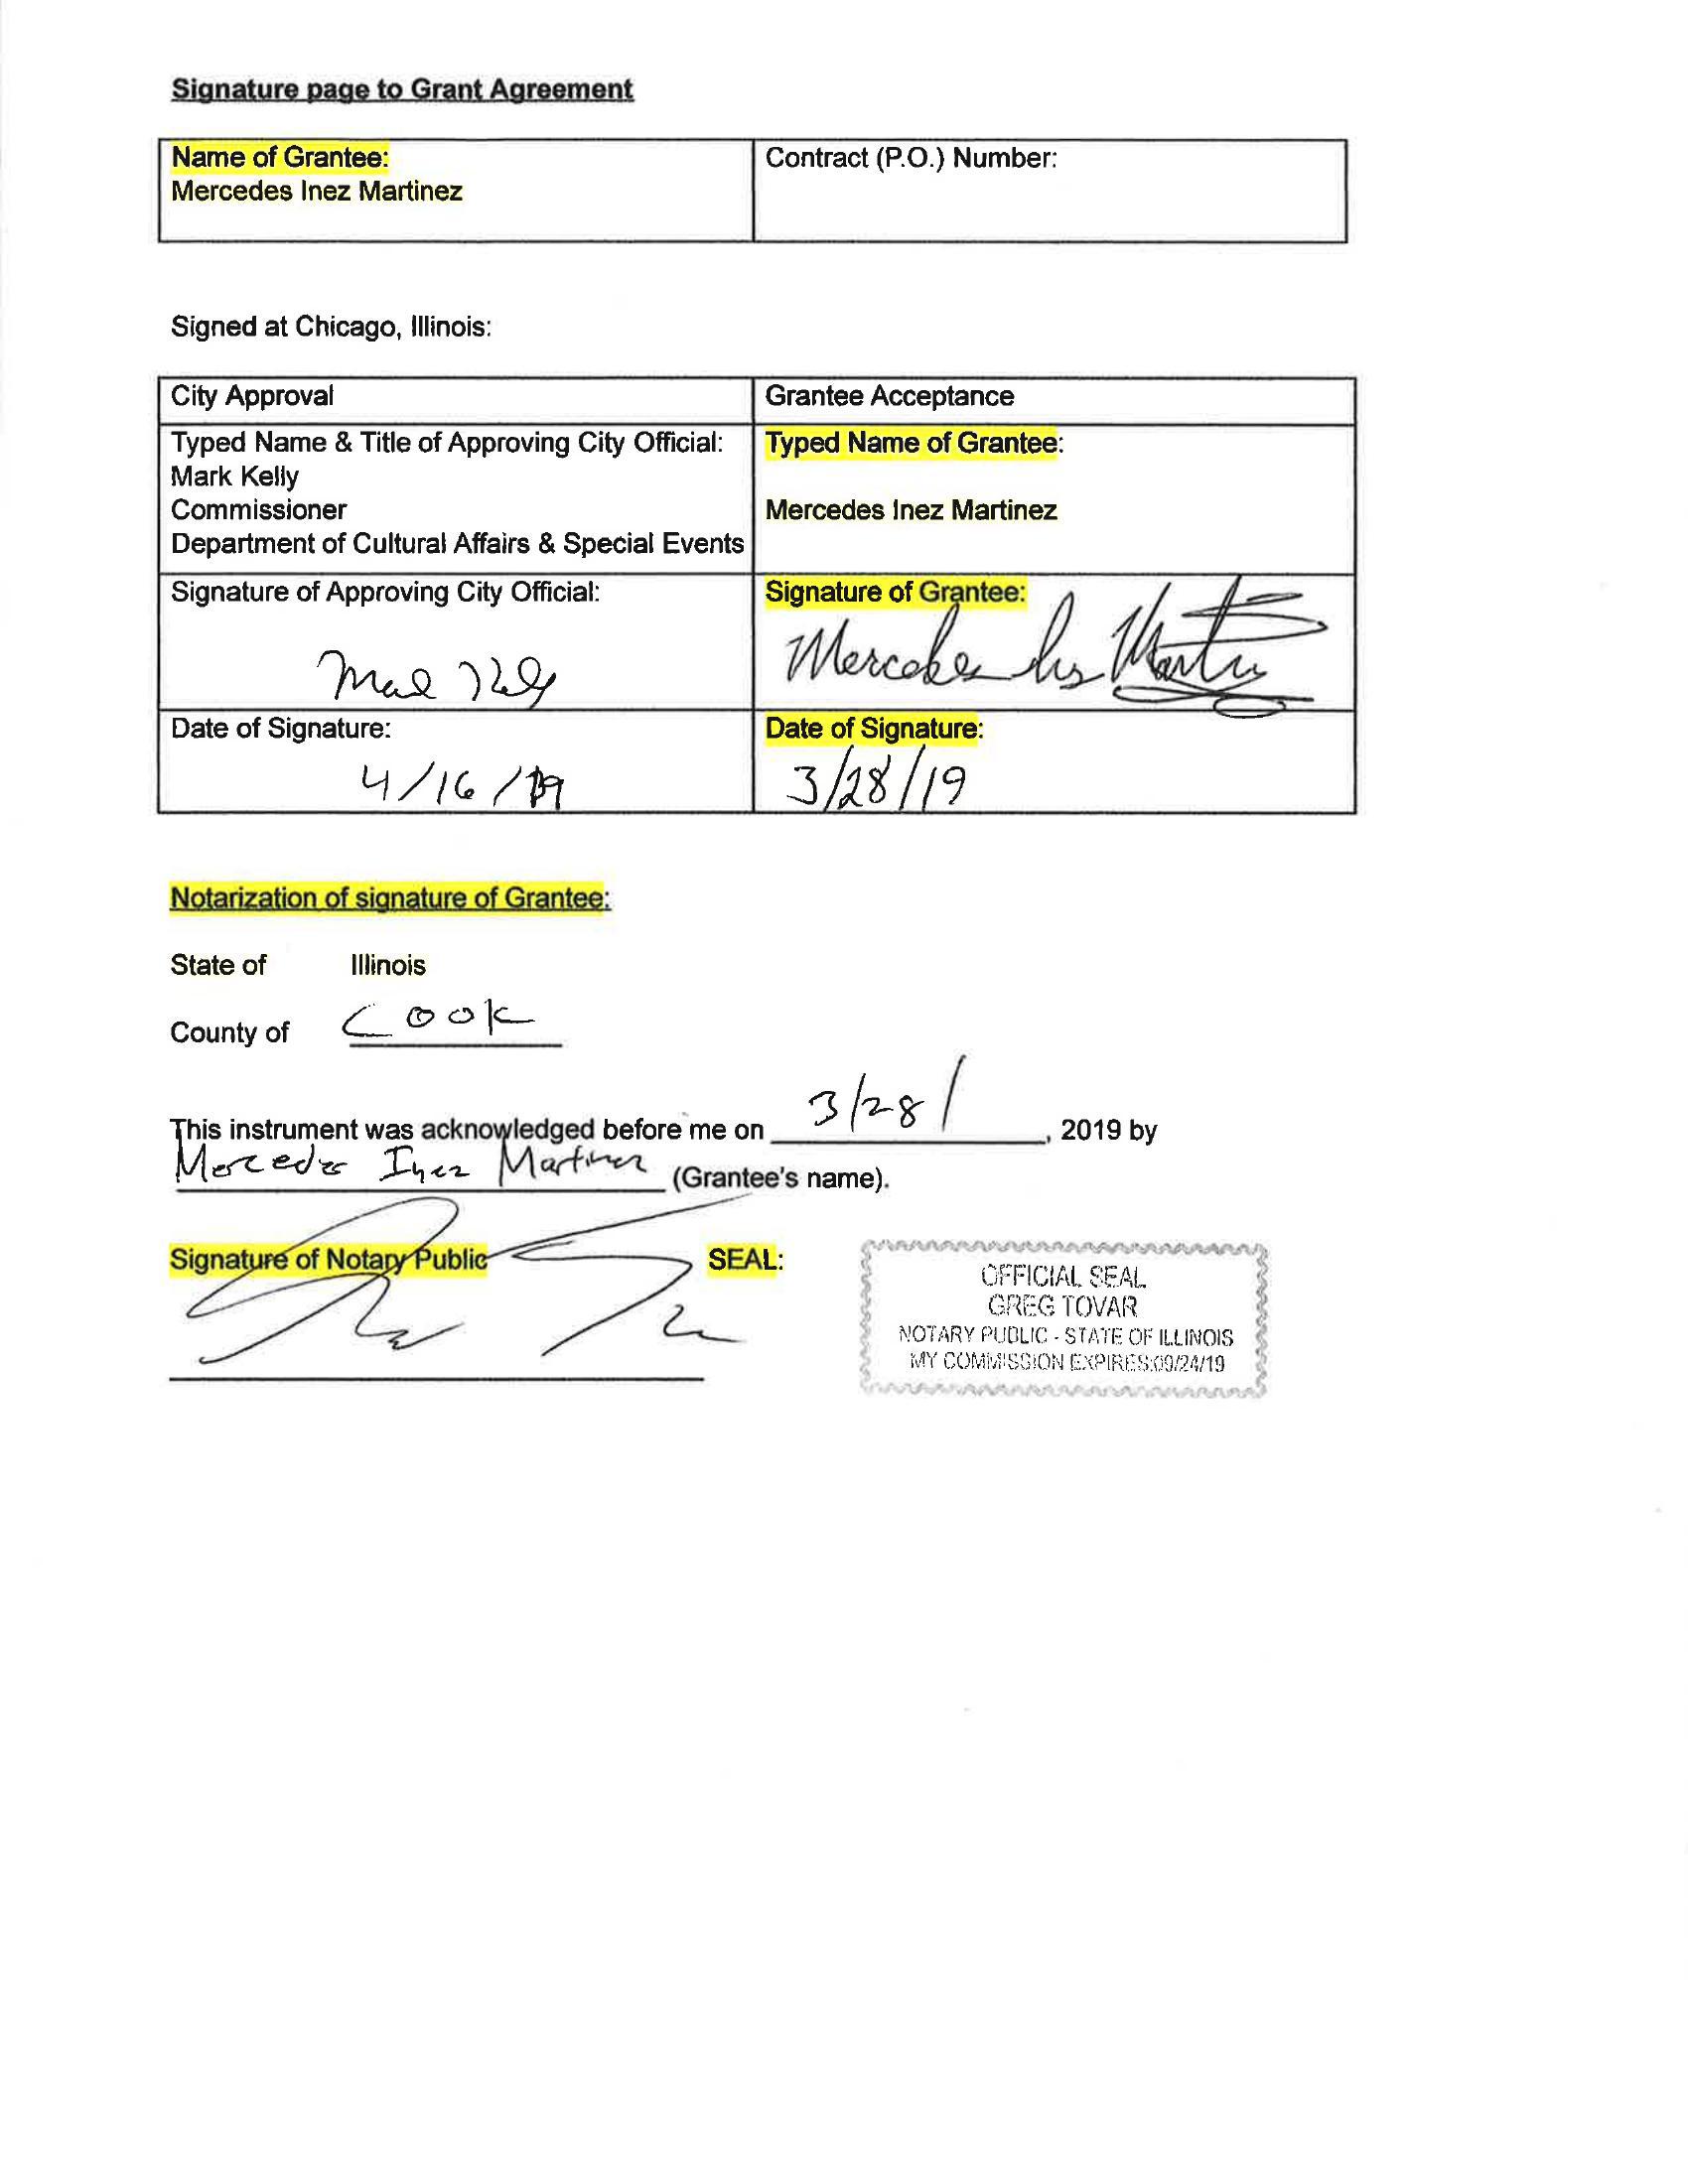 Signature page to Grant Agreement
Name of Grantee:
Mercedes Inez Martinez
Contract (P.O.) Number:
Signed at Chicago, Illinois:
City Approval
Grantee Acceptance
Typed Name & Title of Approving City Official:
Mark Kelly
Commissioner
Department of Cultural Affairs & Special Events
Typed Name of Grantee:
Mercedes Inez Martinez
Signature of Approving City Official:
Signature of Grantee:
Date of Signature:
4/16/19
Date of Signature:
3/28/19
Notarization of signature of Grantee:
State of Illinois
County of Cook
This instrument was acknowledged before me on 3/28/, 2019 by
Mercedes Inez Martinez (Grantee's name).
Signature of Notary Public
SEAL:
OFFICIAL SEAL
GREG TOVAR
NOTARY PUBLIC - STATE OF ILLINOIS
MY COMMISSION EXPIRES:09/24/19